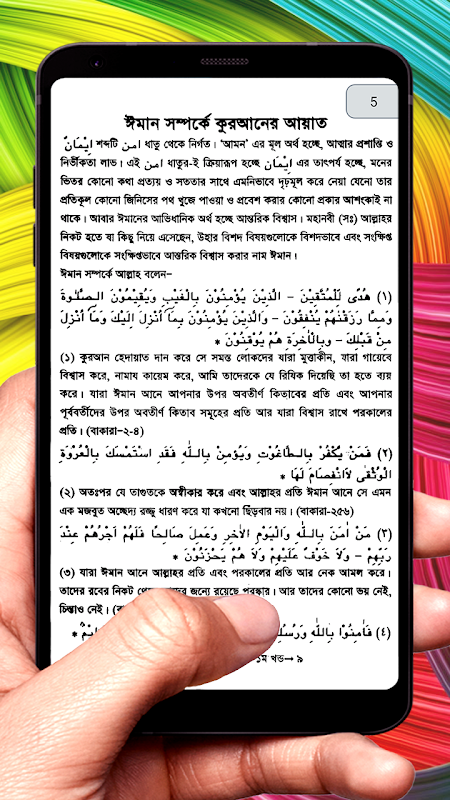 5
ঈমান সম্পর্কে কুরআনের আয়াত
اِيْمَانٌ শব্দটি امن ধাতু থেকে নির্গত। 'আমন' এর মূল অর্থ হচ্ছে, আত্মার প্রশান্তি ও
নির্ভীকতা লাভ। এই امن ধাতুর-ই ক্রিয়ারূপ হচ্ছে اِيْمَان এর তাৎপর্য হচ্ছে, মনের
ভিতর কোনো কথা প্রত্যয় ও সততার সাথে এমনিভাবে দৃঢ়মূল করে নেয়া যেনো তার
প্রতিকূল কোনো জিনিসের পথ খুজে পাওয়া ও প্রবেশ করার কোনো প্রকার আশংকাই না
থাকে। আবার ঈমানের আভিধানিক অর্থ হচ্ছে আন্তরিক বিশ্বাস। মহানবী (সঃ) আল্লাহর
নিকট হতে যা কিছু নিয়ে এসেছেন, উহার বিশদ বিষয়গুলোকে বিশদভাবে এবং সংক্ষিপ্ত
বিষয়গুলোকে সংক্ষিপ্তভাবে আন্তরিক বিশ্বাস করার নাম ঈমান।
ঈমান সম্পর্কে আল্লাহ বলেন–
(١) هُدًى لِّلْمُتَّقِيْنَ – الَّذِيْنَ يُؤْمِنُوْنَ بِالْغَيْبِ وَيُقِيْمُوْنَ الصَّلٰوةَ
وَمِمَّا رَزَقْنٰهُمْ يُنْفِقُوْنَ – وَالَّذِيْنَ يُؤْمِنُوْنَ بِمَا اُنْزِلَ اِلَيْكَ وَمَا اُنْزِلَ
مِنْ قَبْلِكَ – وَبِالْاٰخِرَةِ هُمْ يُوْقِنُوْنَ *
(১) কুরআন হেদায়াত দান করে সে সমস্ত লোকদের যারা মুত্তাকীন, যারা গায়েবে
বিশ্বাস করে, নামায কায়েম করে, আমি তাদেরকে যে রিযিক দিয়েছি তা হতে ব্যয়
করে। যারা ঈমান আনে আপনার উপর অবতীর্ণ কিতাবের প্রতি এবং আপনার
পূর্ববর্তীদের উপর অবতীর্ণ কিতাব সমূহের প্রতি আর যারা বিশ্বাস রাখে পরকালের
প্রতি। (বাকারা-২-৪)
(٢) فَمَنْ يَّكْفُرْ بِالطَّاغُوْتِ وَيُؤْمِنْ بِاللّٰهِ فَقَدِ اسْتَمْسَكَ بِالْعُرْوَةِ
الْوُثْقٰى لَاانْفِصَامَ لَهَا *
(২) অতঃপর যে তাগুতকে অস্বীকার করে এবং আল্লাহর প্রতি ঈমান আনে সে এমন
এক মজবুত অচ্ছেদ্য রজ্জু ধারণ করে যা কখনো ছিড়বার নয়। (বাকারা-২৫৬)
(٣) مَنْ اٰمَنَ بِاللّٰهِ وَالْيَوْمِ الْاٰخِرِ وَعَمِلَ صَالِحًا فَلَهُمْ اَجْرُهُمْ عِنْدَ
رَبِّهِمْ – وَلَا خَوْفٌ عَلَيْهِمْ وَلَا هُمْ يَحْزَنُوْنَ *
(৩) যারা ঈমান আনে আল্লাহর প্রতি এবং পরকালের প্রতি আর নেক আমল করে।
তাদের রবের নিকট জন্যে রয়েছে পুরস্কার। আর তাদের কোনো ভয় নেই,
চিন্তাও নেই।
(٤) فَاٰمِنُوْا بِاللّٰهِ *
১ম খন্ড→ ৯